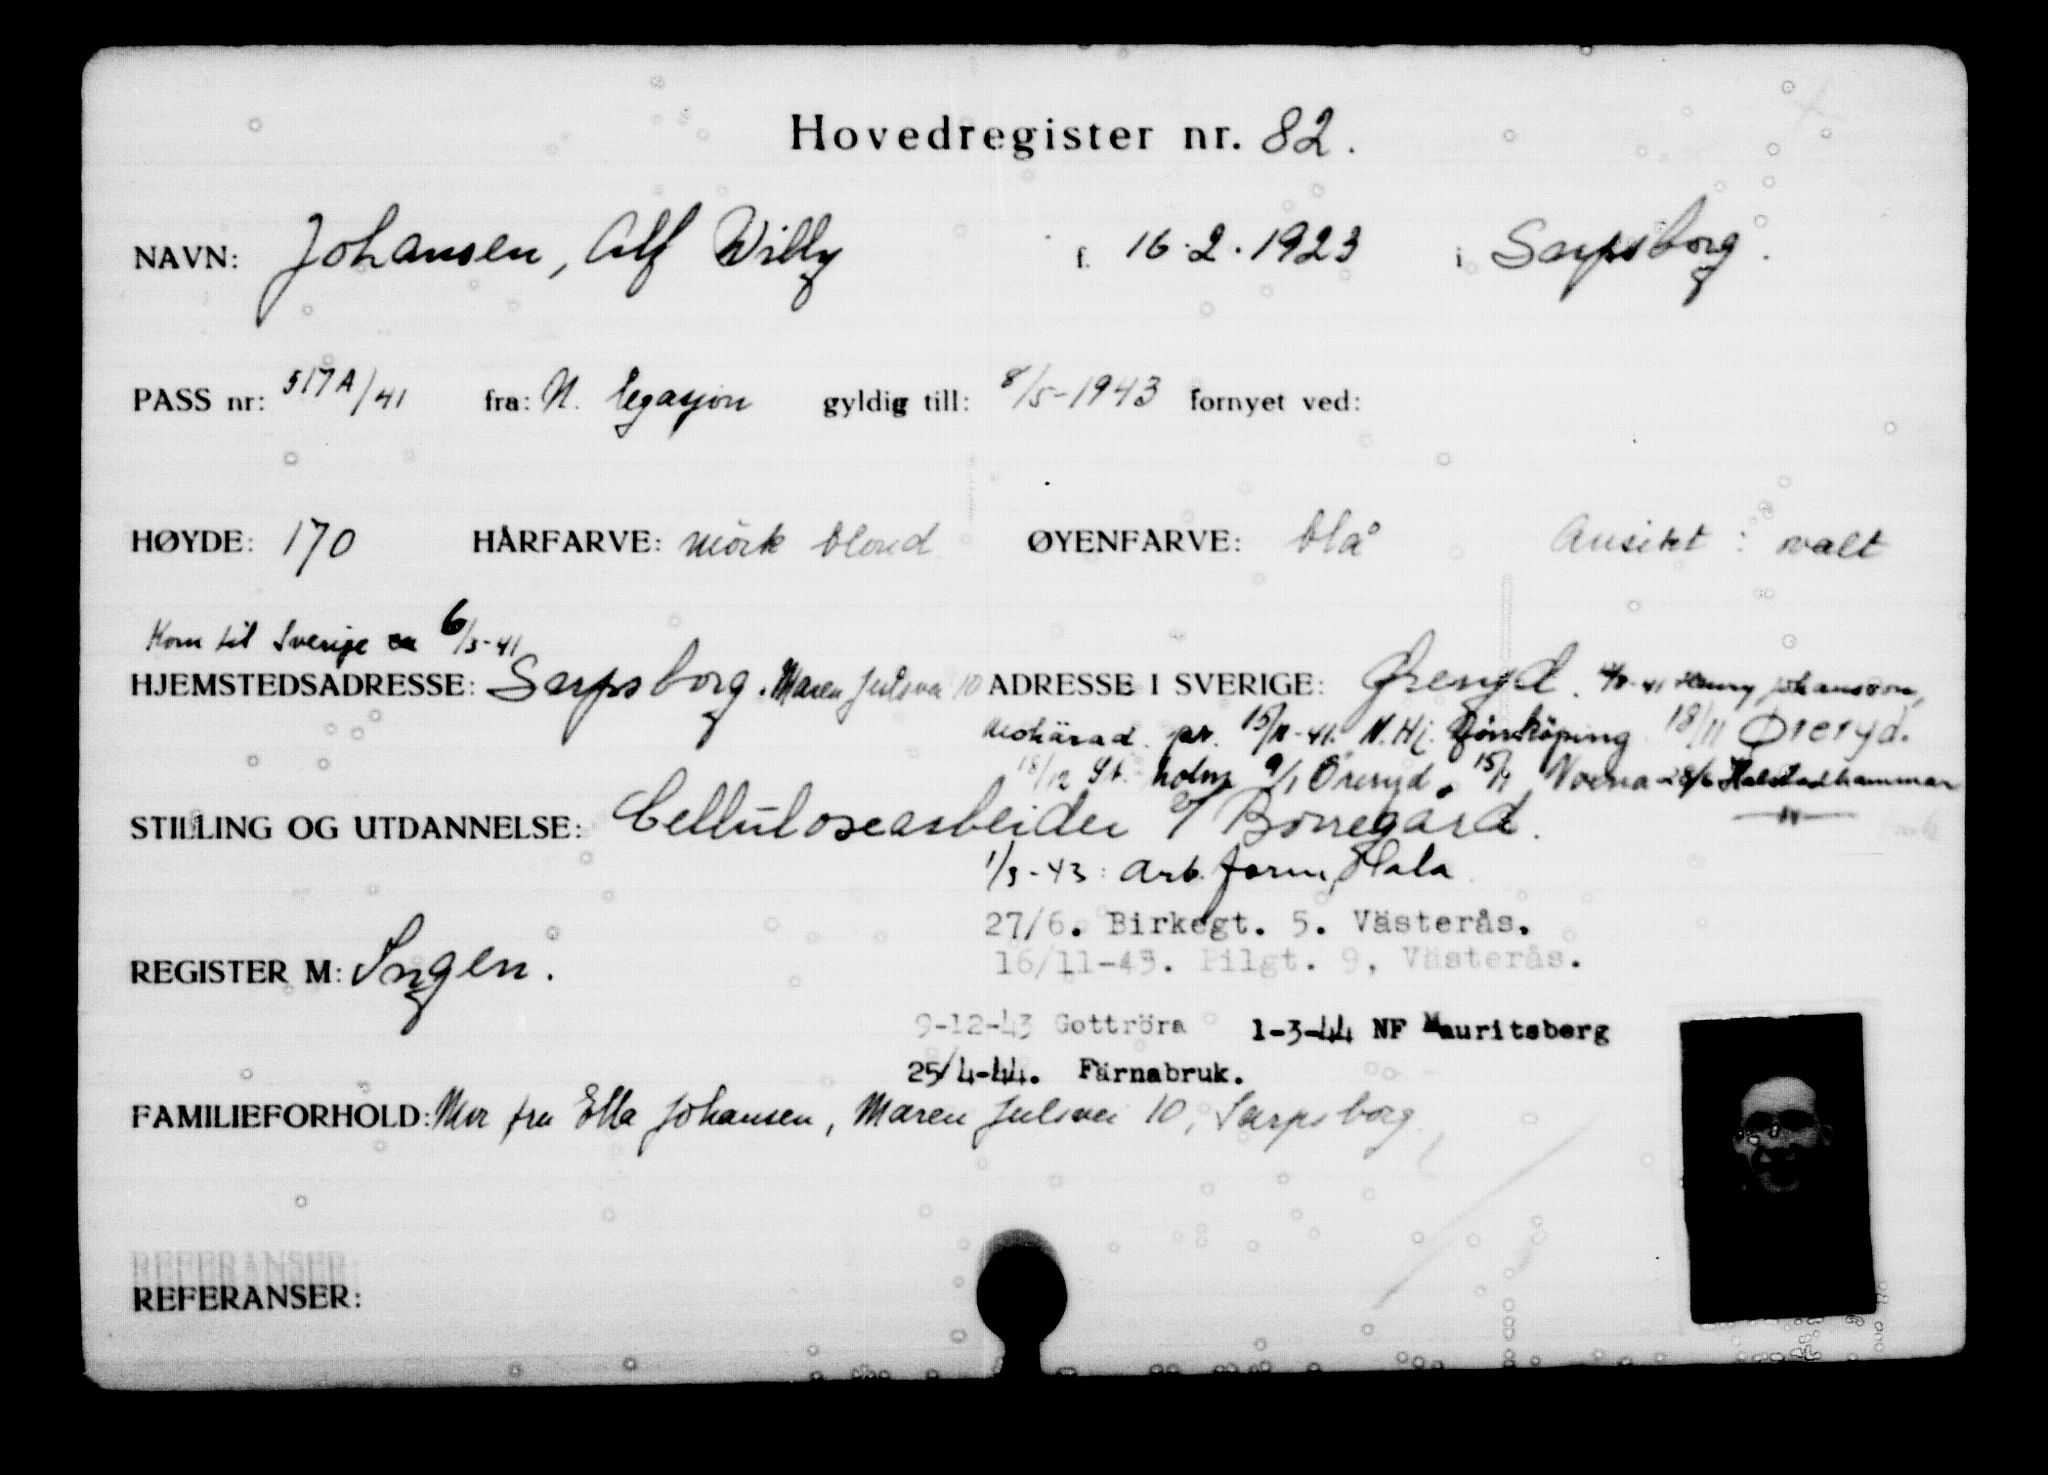 Hovedregister nr. 82.
NAVN: Johansen, Alf Willy f. 16.2.1923 i Sarpsborg.
PASS nr: 517A/41 fra: N. legasjon gyldig till: 8/5-1943 fornyet ved:
HØYDE: 170 HÅRFARVE: mörk blond ØYENFARVE: blå Ansikt : ovalt
Kom til Sverige 6/5-41
HJEMSTEDSADRESSE: Sarpsborg. Maren Julsvei 10 ADRESSE I SVERIGE: Øreryd. Henry Johansson,
pr. 15/11-41. N. Hj. Jönköping 18/11 Øreryd.
18/12 St. holm 9/1 Öreryd. 15/4 Norna 28/6 Halstadhammar
STILLING OG UTDANNELSE: Cellulosearbeider v/ Borregård. — " —
1/3-43: Arb. form, Hala
27/6. Birkegt. 5. Västerås.
REGISTER M: Ingen. 16/11-43. Pilgt. 9, Västerås.
9-12-43 Gottröra 1-3-44 NF Mauritsberg
25/4-44. Färnabruk.
FAMILIEFORHOLD: Mor fru Ella Johansen, Maren Julsvei 10, Sarpsborg.
REFERANSER:
REFERANSER: